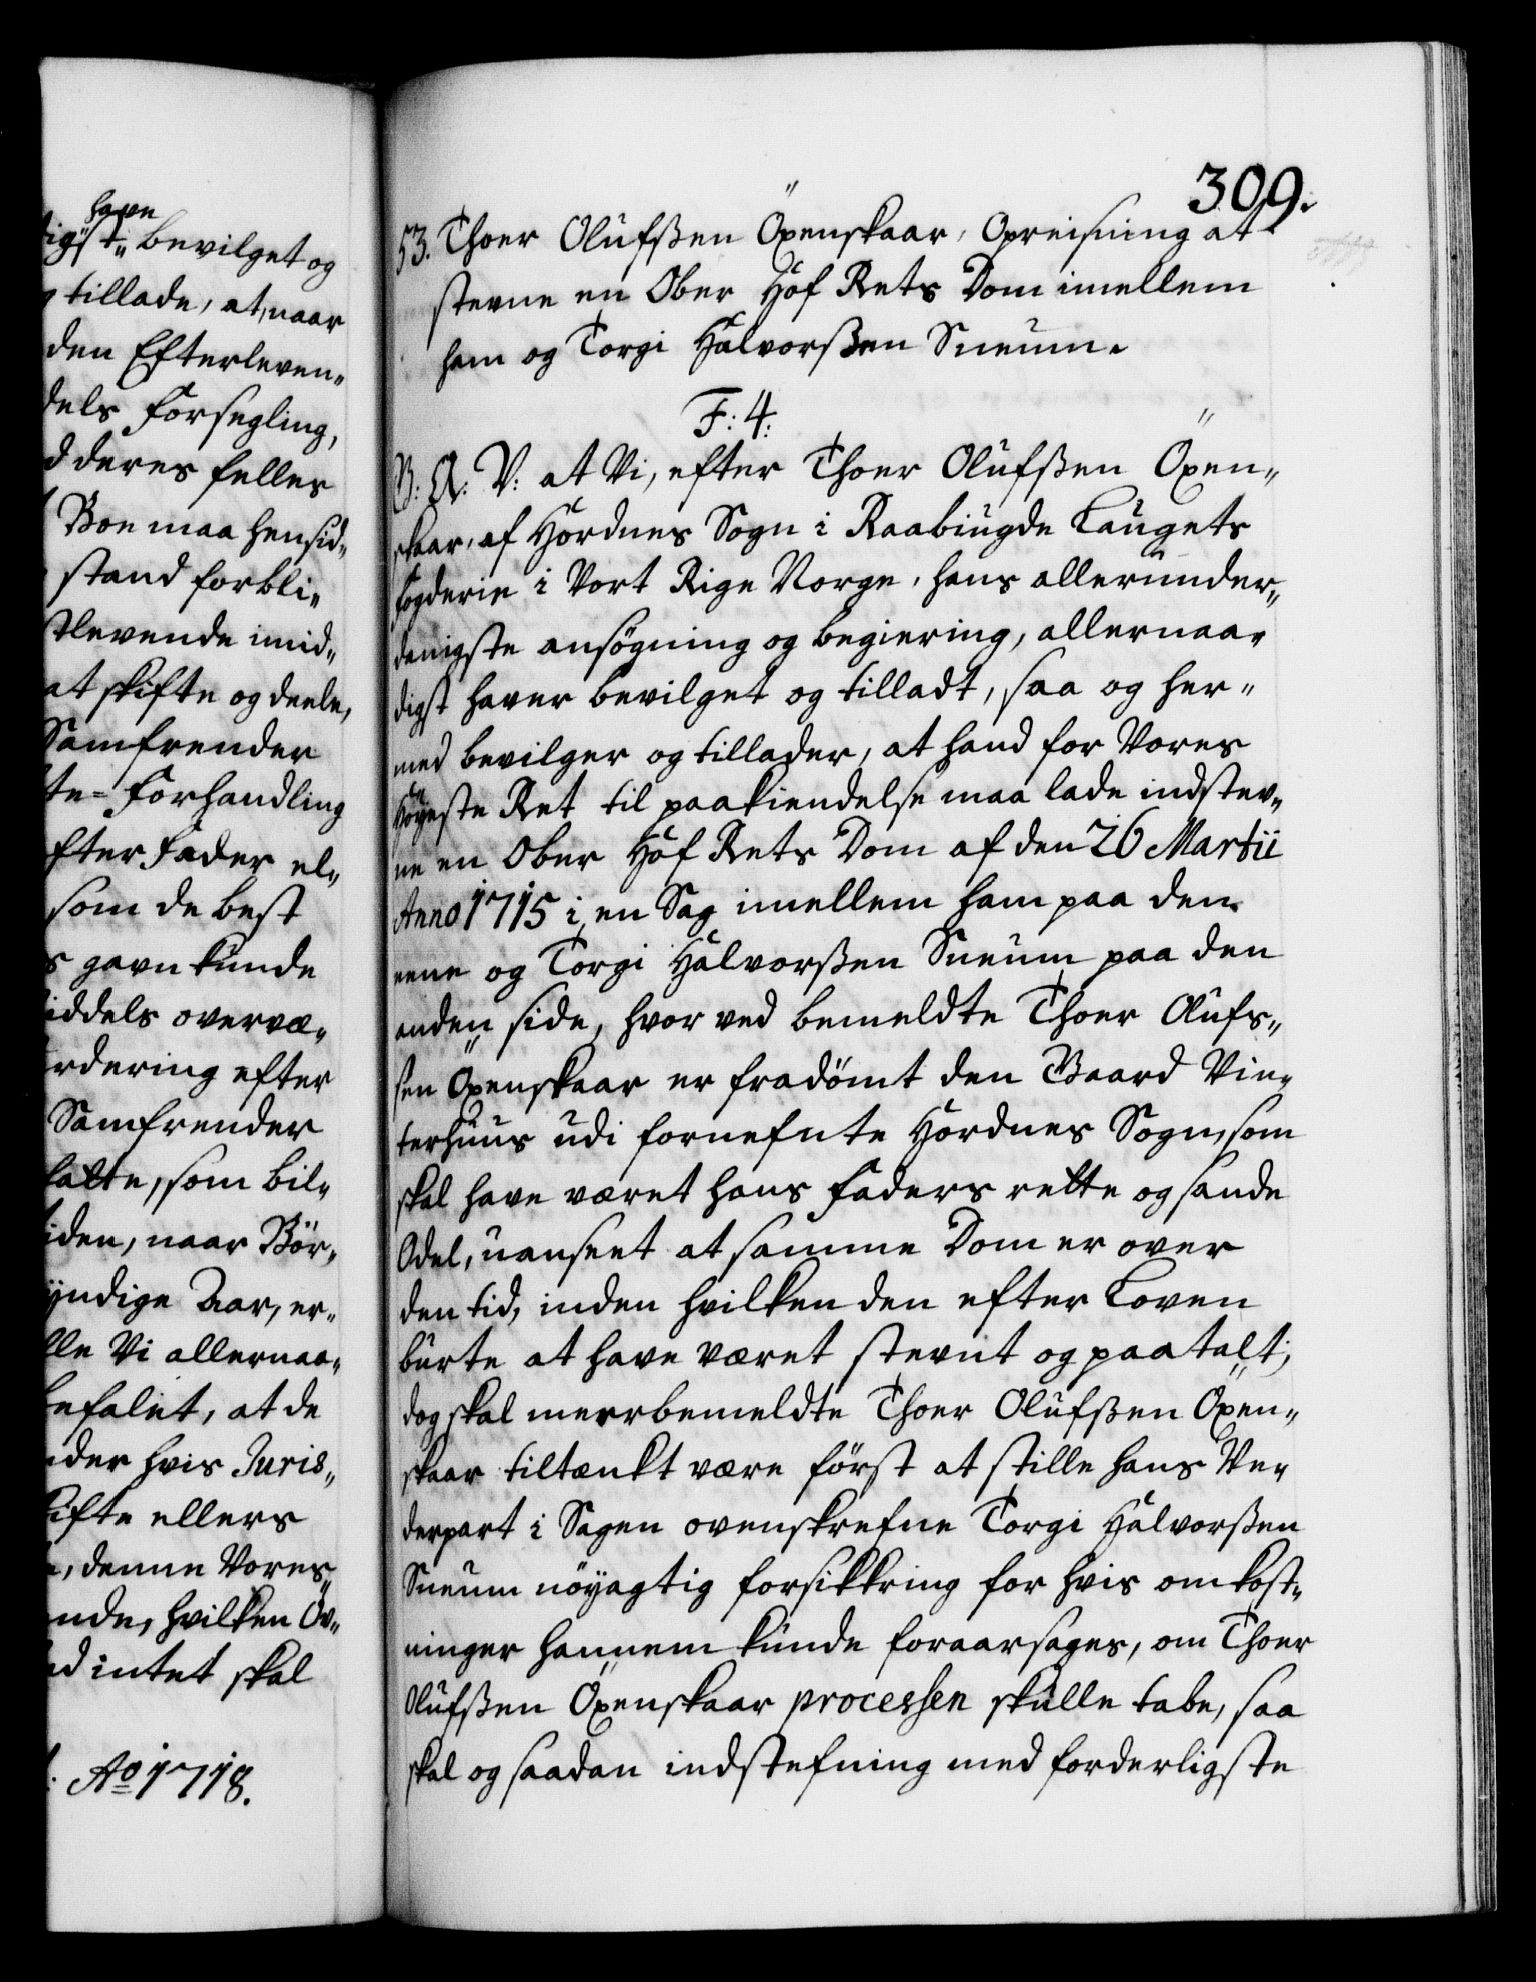 have
digst bevilget og
tillade, at, naar
den Efterleven„
dels Forsegling,
d deres felles
Boe maa hensid„
stand forbli„
tlevende imid„
at skifte og deele,
Samfrender
te-Forhandling
fter Fader el„
som de best
s gavn kunde
iddels overvæ„
rdering efter
Samfrender
satte, som bil„
iden, naar Bör„
yndige Aar, er„
lle Vi allernaa„
befalet, at de
nder hvis Juris„
kifte ellers
, denne Vores
nde, hvilken Öv„
d intet skal
: Aº 1718.
309.
53. Thoer Olufsßen Öxenskaar, Opreisning at
stevne en Ober Hof Rets Dom imellem
ham og Torgi Halvorsßen Sneum.
F: 4:
B: A: V: at Vi, efter Thoer Olufsßen Öxen„
skaar, af Hordnes Sogn i Raabiugde Laugets
Fogderie i Vort Rige Norge, hans allerunder„
danigste ansøgning og begiering, allernaa„
digst haver bevilget og tilladt, saa og her„
med bevilger og tillader, at hand for Vores
Höyeste Ret til paakiendelse maa lade indstev„
ne en Ober Hof Rets Dom af den 26 Martii
Anno 1715 i en Sag imellem ham paa den
eene og Torgi Halvorsßen Sneum paa den
anden side, hvor ved bemeldte Thoer Olufs„
sen Öxenskaar er fradömt den Gaard Vin„
terhuus udi fornefnte Hordnes Sogn, som
skal have været hans Faders rette og sande
Odel, uanseet at samme Dom er over
den tid, inden hvilken den efter Loven
burte at have været stevnt og paatalt;
dog skal meerbemeldte Thoer Olufsßen Öxen„
skaar tiltænkt være först at stille hans Ve„
derpart i Sagen ovenskrefne Torgi Halvorsßen
Sneum nöyagtig forsikkring for hvis omkost„
ninger hannem kunde foraarsages, om Thoer
Olufsßen Öxenskaar processen skulle tabe, saa
skal og saadan indstefning med forderligste